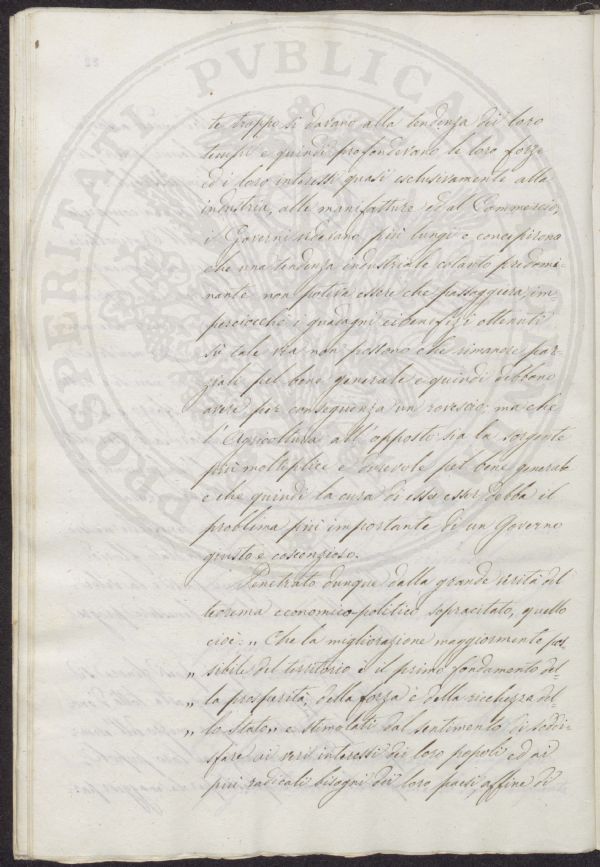 te troppo si davano alla tendenza dei loro
tempi e quindi profondevano le loro forze
ed i loro interessi quasi esclusivamente alla
industria, alle manifatture ed al Commercio,
i Governi videvano più lungi e concepirono
che una tendenza industriale cotanto predomi-
nante non poteva essere che passaggiera, im
perciocché i guadagni ei benefizj ottenuti
su tale via non possono che rimanere par-
ziali pel bene generale e quindi debbono
avere per conseguenza un rovescio; ma che
l'Agricoltura all'opposto sia la sorgente
più moltiplice e durevole pel bene generale
e che quindi la cura di essa esser debba il
problema più importante di un Governo
giusto e coscenzioso.
Penetrato dunque dalla grande verità del
teorema economico-politico sopracitato, quello
cioè: „ Che la migliorazione maggiormente pos-
„ sibile del territorio è il primo fondamento del-
„ la prosperità, della forza e della ricchezza del-
„ lo Stato „ e stimolati dal sentimento di soddi-
sfare ai veri interessi dei loro popoli ed ai
più radicali bisogni dei loro paesi, affine di
PROSPERITATI PVBLICAE